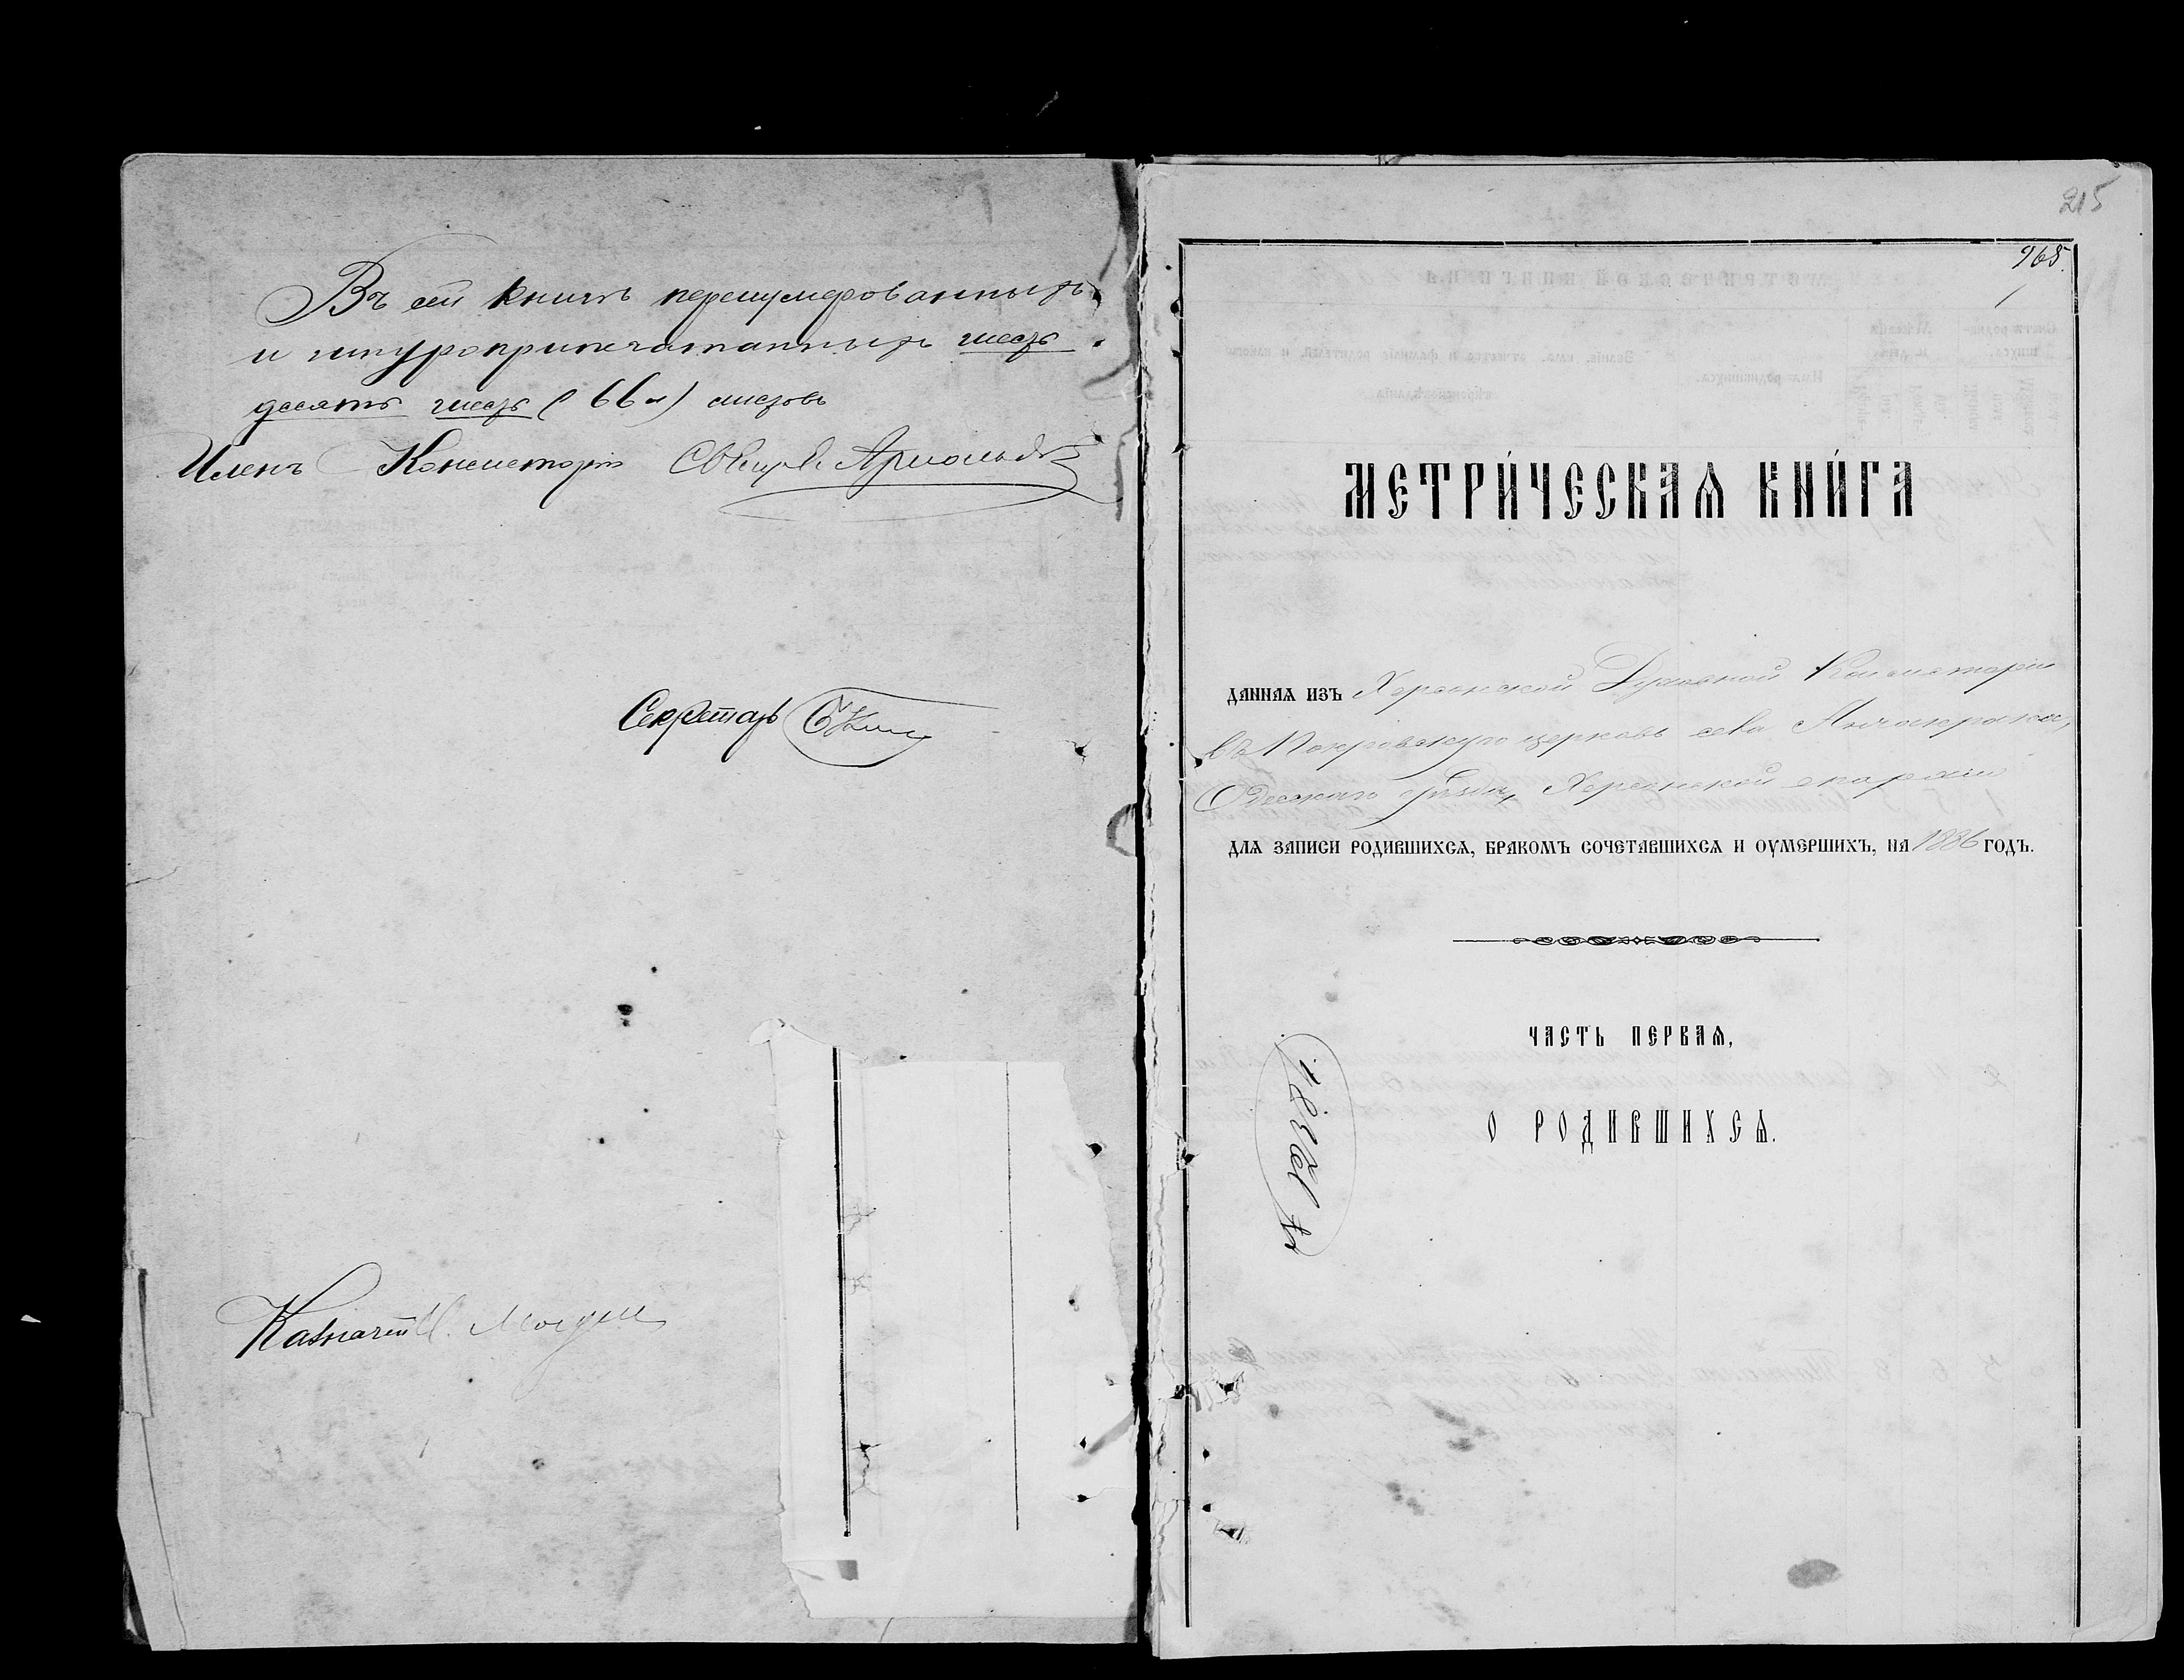 Въ сей книгѣ перенумерованныхъ
и шнуроприпечатанныхъ шесть
десятъ шесть (66 л) листовъ
Членъ Консисторіи Свящ. Арнольдъ
Секретарь
Казначей
215
965.
1
МЕТРИ́ЧЕСКАѦ КНИ́ГА
ДАННАѦ ИЗЪ Херсонской Духовной Консисторіи
въ Покровскую церковь села Анчакрака,
Одесскаго уѣзда, Херсонской епархіи
ДЛѦ ЗАПИСИ РОДИВШИХСѦ, БРАКОМЪ СОЧЕТАВШИХСѦ И ОУМЕРШИХЪ, НА 1886 ГОДЪ.
ЧАСТЬ ПЕРВАѦ,
О РОДИВШИХСѦ.